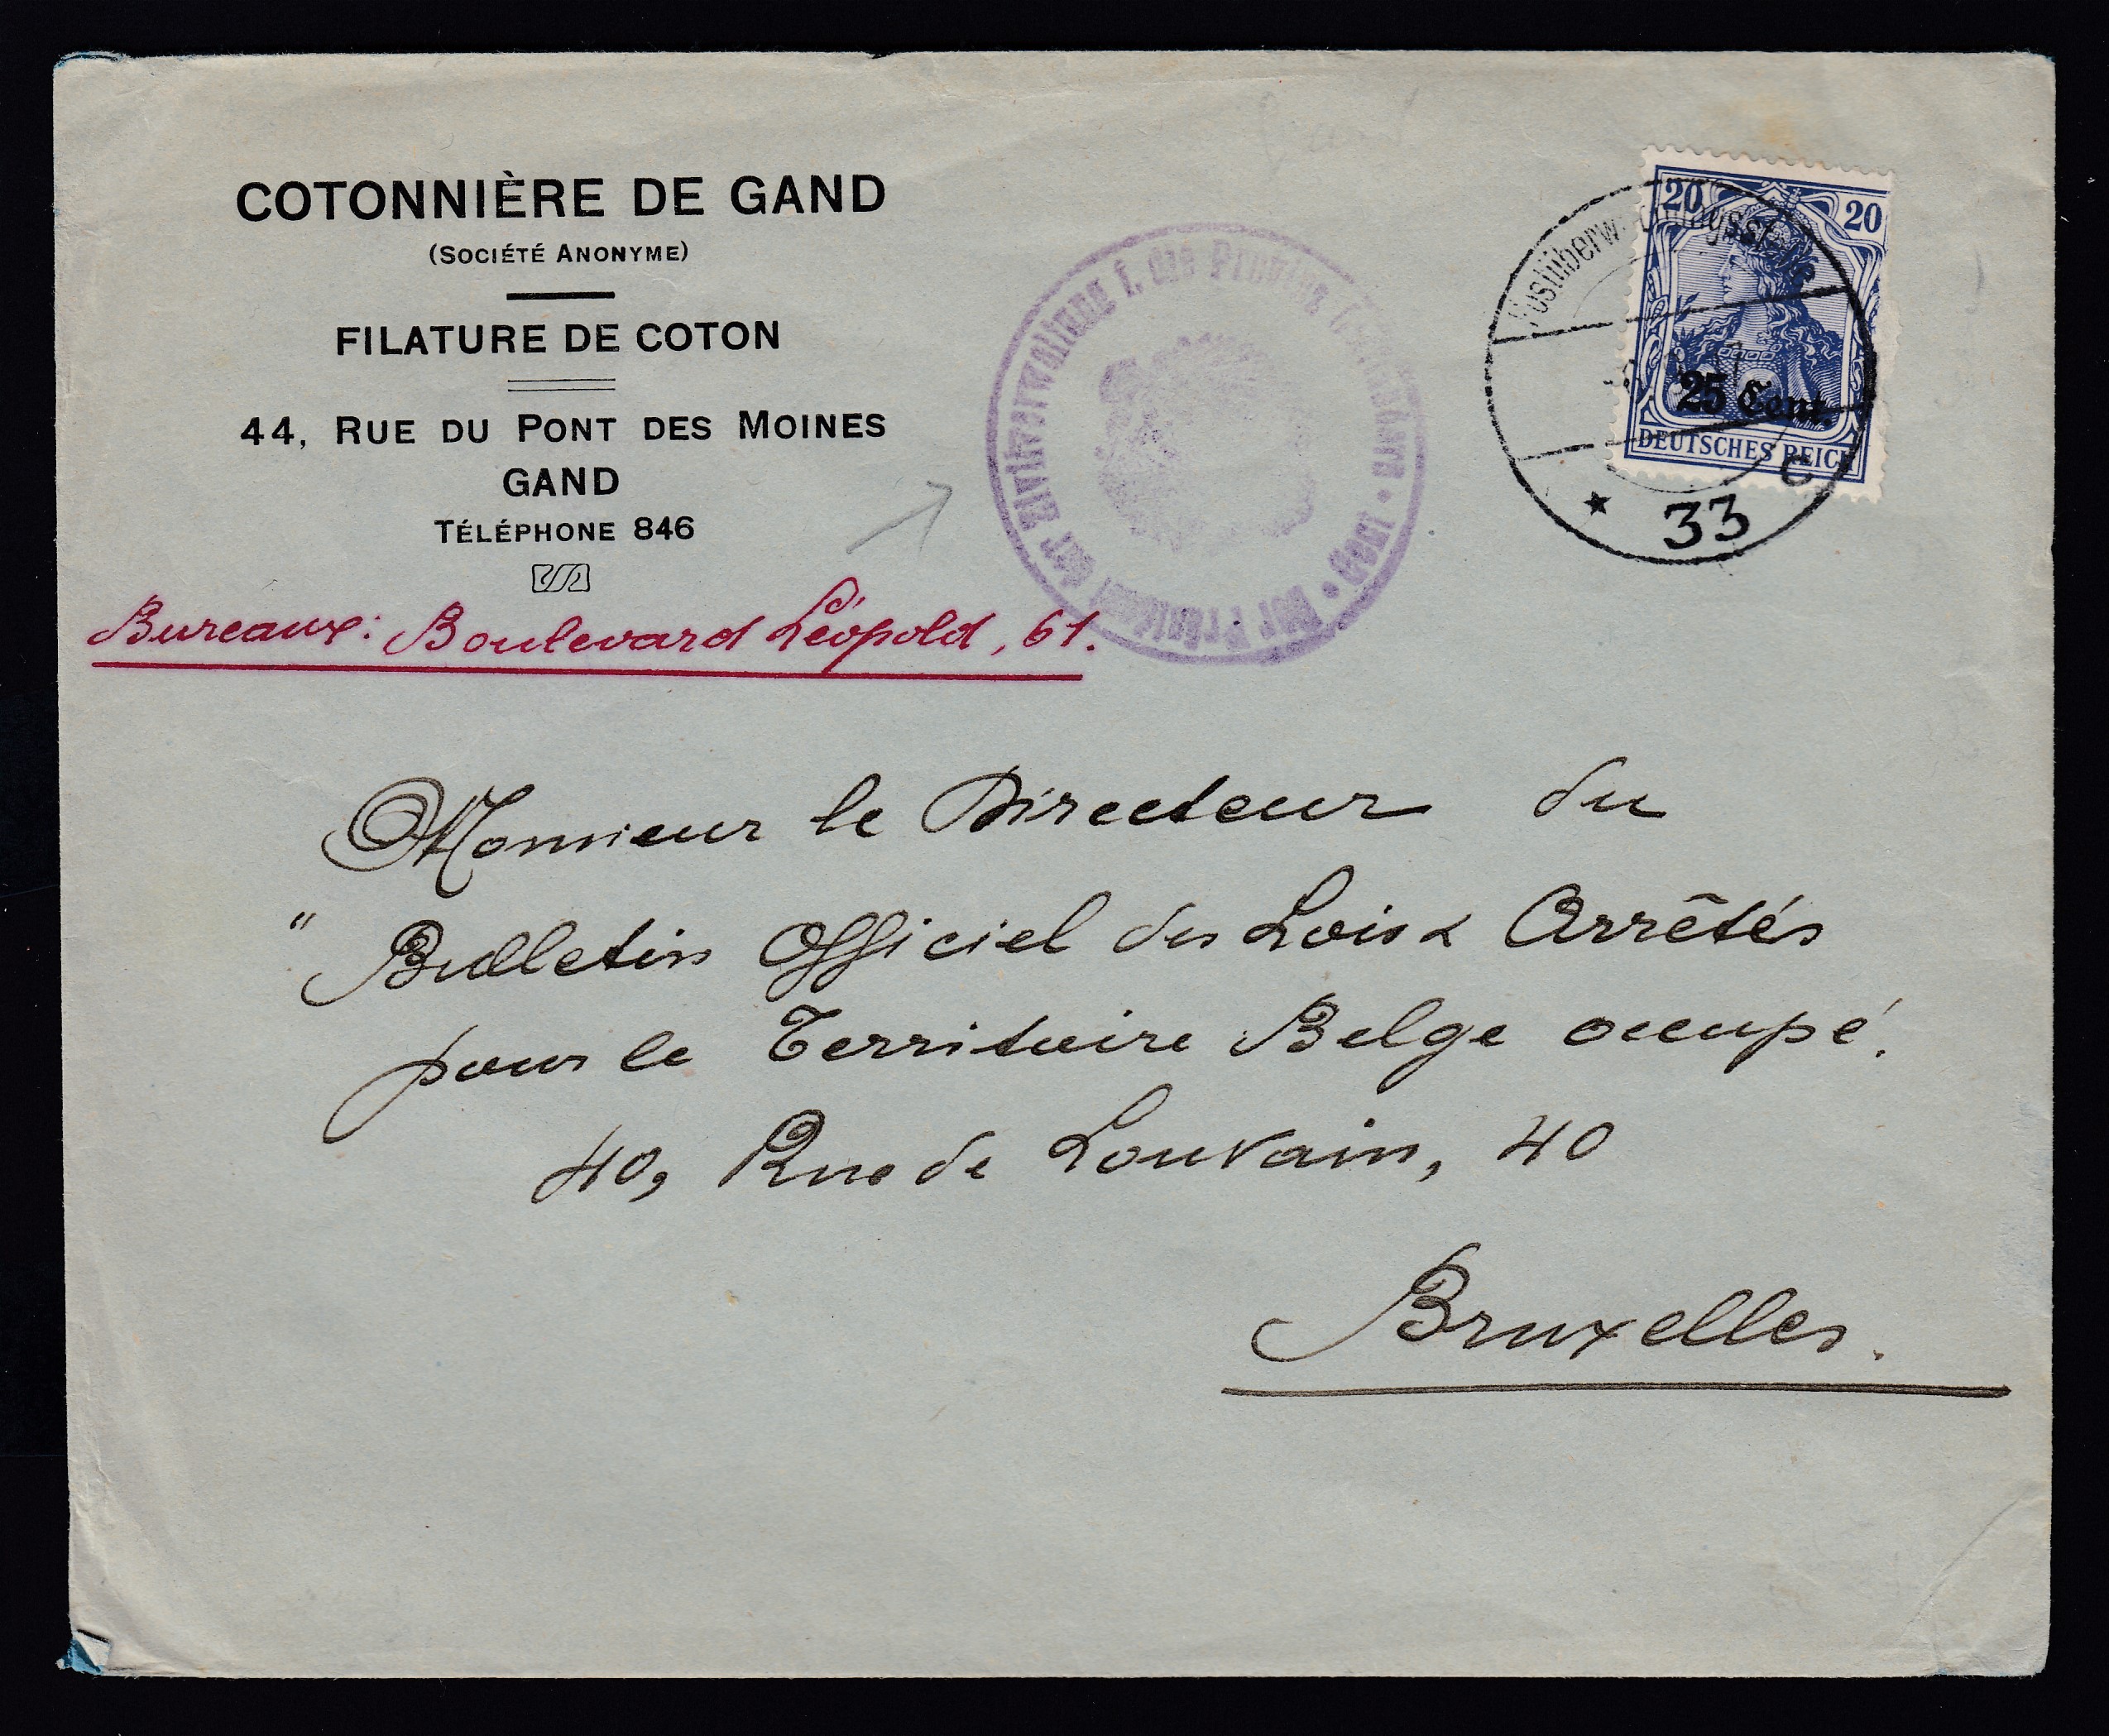 COTONNIÈRE DE GAND
(SOCIÉTÉ ANONYME)
FILATURE DE COTON
44, RUE DU PONT DES MOINES
GAND
TÉLÉPHONE 846
Bureaux: Boulevard Léopold, 61.
Der Präsident der Zivilverwaltung f. die Provinz
20 20
25 Cent
DEUTSCHES REICH
* 33 c
Monsieur le Directeur du
" Bulletin Officiel des Lois & Arrêtés
pour le Territoire Belge occupé.
40, Rue de Louvain, 40
Bruxelles.